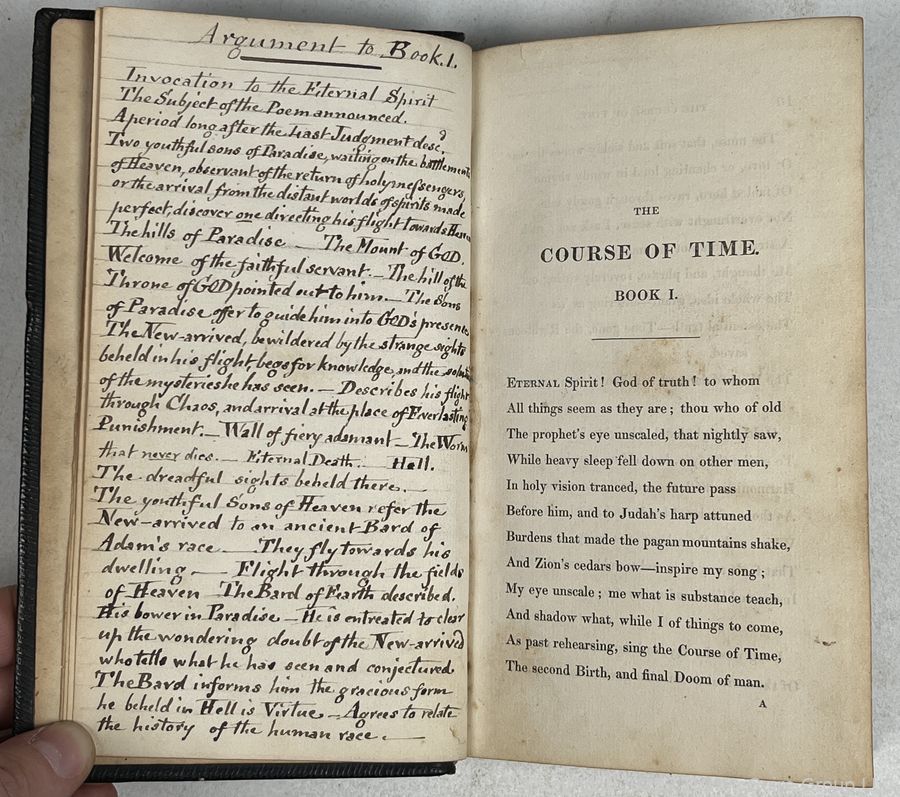 Argument to Book.1.
Invocation to the Eternal Spirit
The Subject of the Poem announced.
A period long after the Last Judgment desc.
Two youthful sons of Paradise, waiting on the battlements
of Heaven, observant of the return of holy messengers,
or the arrival from the distant worlds of spirits made
perfect, discover one directing his flight towards Heaven
The hills of Paradise — The Mount of GOD.
Welcome of the faithful servant. — The hill of the
Throne of GOD pointed out to him. — The Sons
of Paradise offer to guide him into GOD's presence
The New-arrived, bewildered by the strange sights
beheld in his flight, begs for knowledge, and the
of the mysteries he has seen. — Describes his flight
through Chaos, and arrival at the place of Everlasting
Punishment. — Wall of fiery adamant — The Worm
that never dies. — Eternal Death. — Hell.
The dreadful sights beheld there. —
The youthful Sons of Heaven refer the
New-arrived to an ancient Bard of
Adam's race — They fly towards his
dwelling — Flight through the fields
of Heaven — The Bard of Earth described.
His bower in Paradise — He is entreated to clear
up the wondering doubt of the New-arrived
who tells what he has seen and conjectured
The Bard informs him the gracious form
he beheld in Hell is Virtue — Agrees to relate
the history of the human race. —
THE
COURSE OF TIME.
BOOK I.
ETERNAL Spirit! God of truth! to whom
All things seem as they are; thou who of old
The prophet's eye unscaled, that nightly saw,
While heavy sleep fell down on other men,
In holy vision tranced, the future pass
Before him, and to Judah's harp attuned
Burdens that made the pagan mountains shake,
And Zion's cedars bow—inspire my song;
My eye unscale; me what is substance teach,
And shadow what, while I of things to come,
As past rehearsing, sing the Course of Time,
The second Birth, and final Doom of man.
A